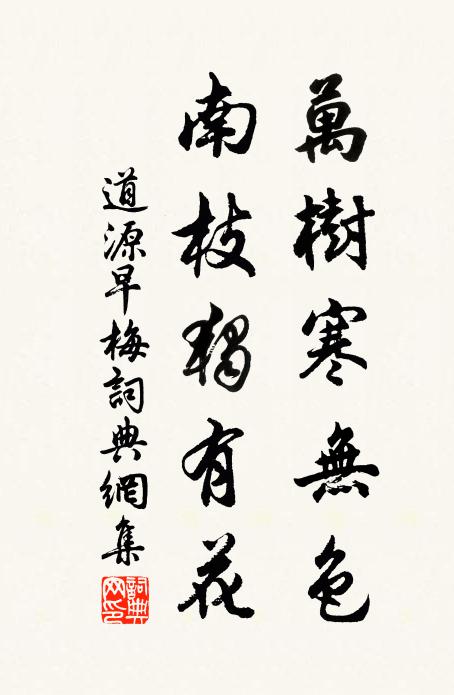 萬樹寒無色
南枝獨有花
道源早梅詞典網集
詞典網印